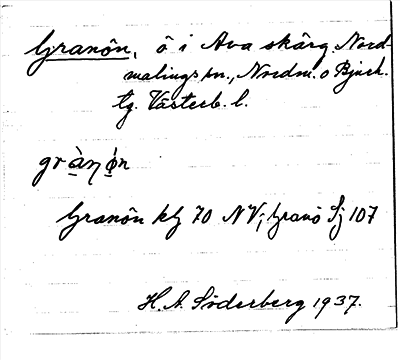 Granön, ö i Ava skärg. Nord-
malings sn., Nordm. o Bjurh.
tg. Västerb. l.
grànøn
Granön kbl 70 NV; Granö Sj 107
H. A. Söderberg 1937.